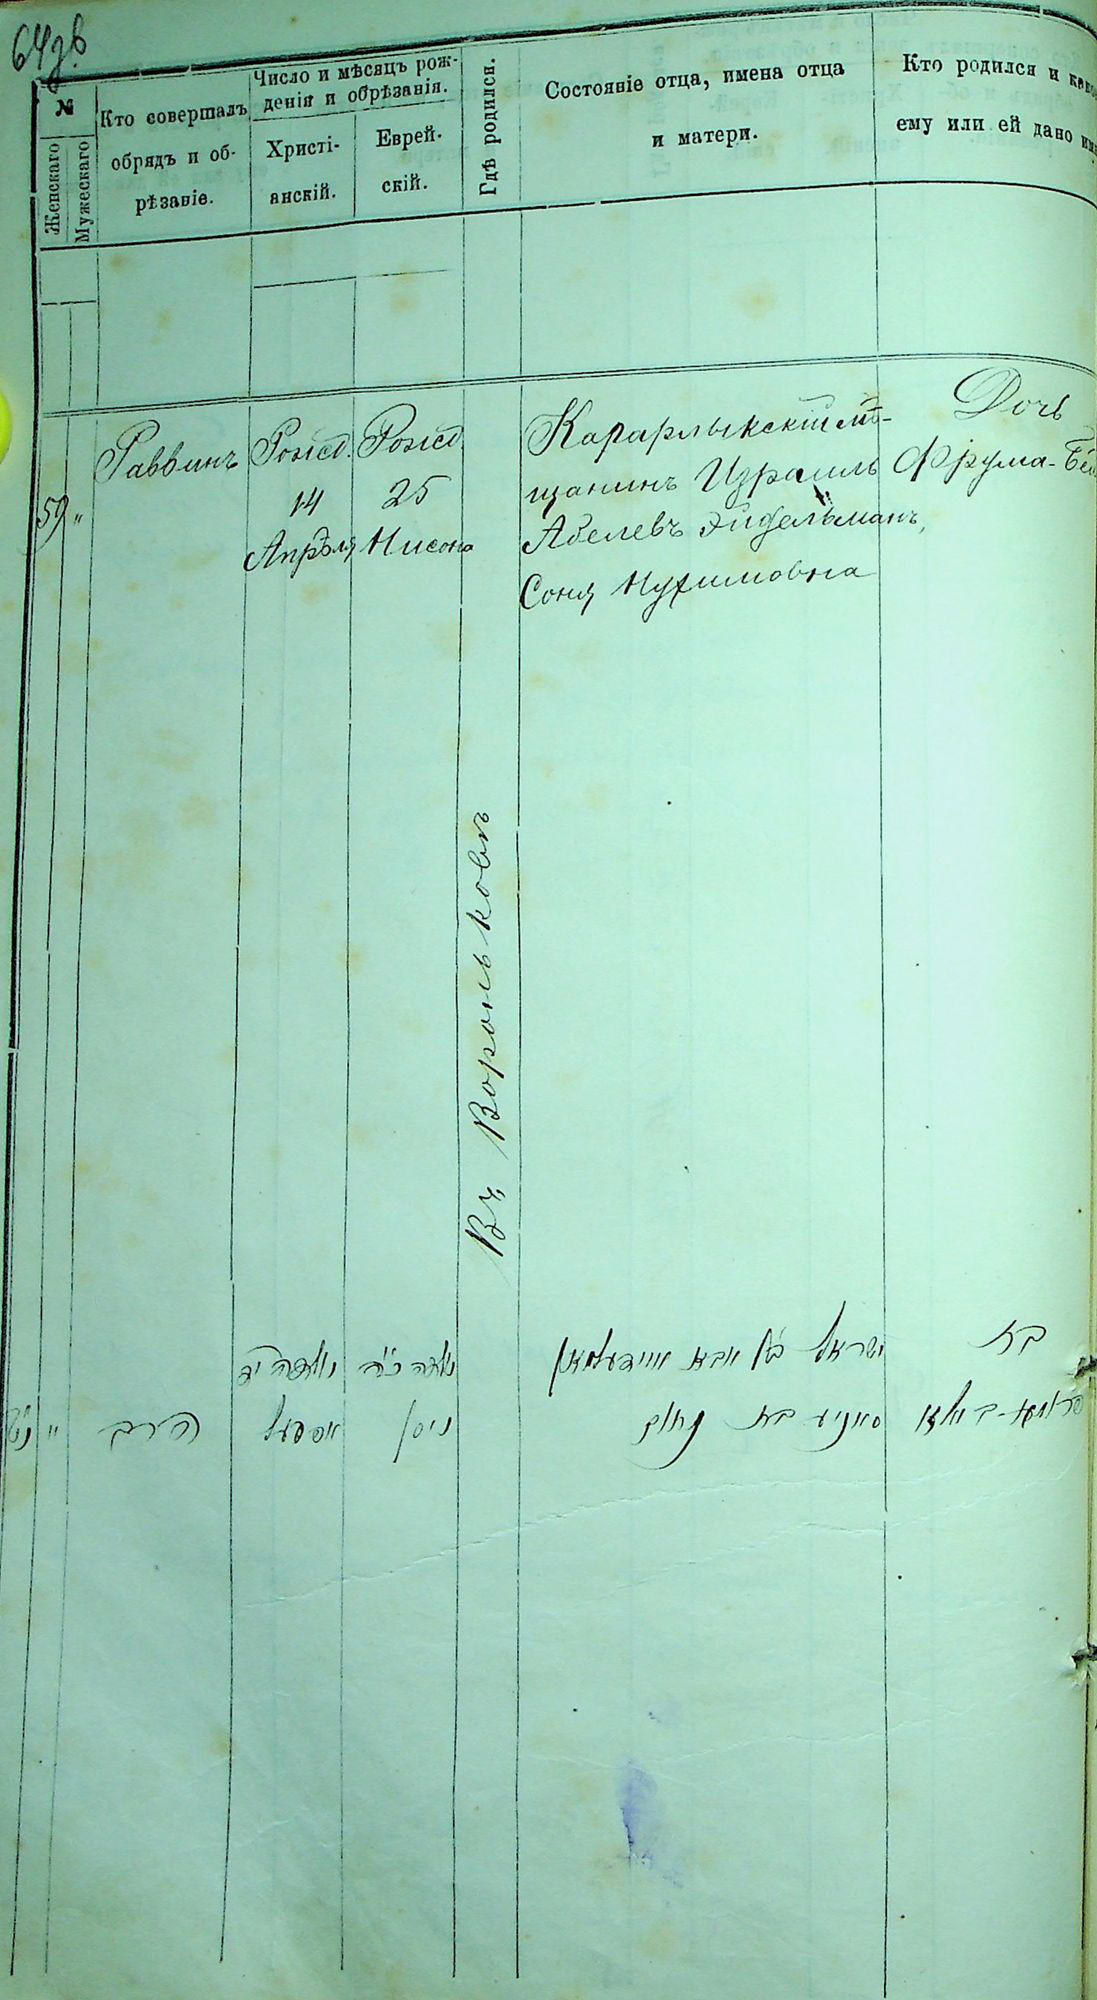 №
Женскаго
Мужескаго
Кто совершалъ
обрядъ и об-
рѣзаніе.
Число и мѣсяцъ рож-
денія и обрѣзанія.
Христі-
анскій.
Еврей-
скій.
Гдѣ родился.
Состояніе отца, имена отца
и матери.
Кто родился и
ему или ей дано
59 "
Раввинъ
Рожд.
14
Апрѣля
Рожд
25
Нисона
Въ Вороньковѣ
Кагарлыкскій мѣ-
щанинъ Израиль
Абелевъ Эйдельманъ,
Соня Нухимовна
Дочь
Фрума-
נולדה יד
אפרעל
נולדה כ"ה
ניסן
ישראל בן אבא איידעלמאן
סאניע בת נחום
בת
הרב
"